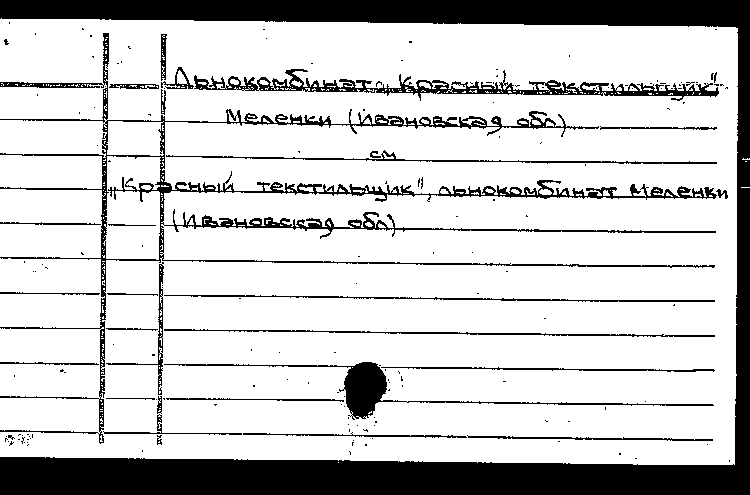 Льнокомбинат „Красный текстильщик"
Меленки (Ивановская обл)
см
„Красный текстильщик", льнокомбинат Меленки
(Ивановская обл)